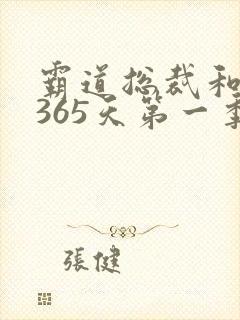 霸道总裁和
365天第一季
張健